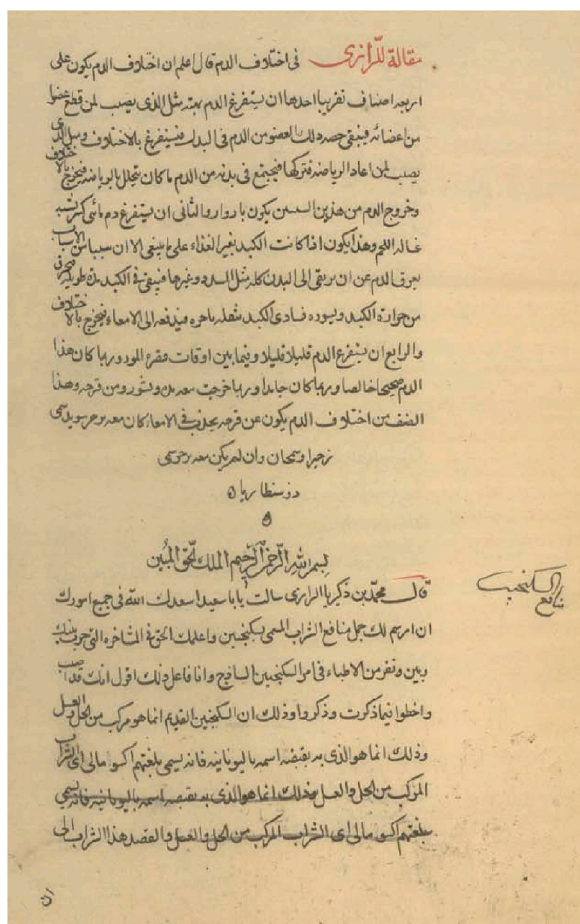 مقالة للرازى فى اختلاف الدم قال اعلم ان اختلاف الدم يكون على
اربعه اصناف تقريبا احدها ان يستفرغ الدم بمثل الذى يصيب لمن قطع عضوا
من اعضائه فيبقى حصه ذلك العضو من الدم فى البدن فيستفرغ بالاختلاف ومثل الذى
يصيب لمن اعاد الرياضه فتركها فيجتمع فى بدنه من الدم ما كان يتحلل بالرياضه فيخرج بالاختلاف
وخروج الدم من هذين السببين يكون بادوار والثانى ان يستفرغ دم مائى كثير شبيه
غساله اللحم وهذا يكون اذا كانت الكبد تغير الغذاء على ما ينبغى الا ان سببا من الاسباب
يعوق الدم عن ان يرتقى الى البدن كله مثل السدد وغيرها فيبقى فى الكبد مدة طويله فيحترق
من حرارة الكبد ويسوده فتاذى الكبد بثقله باخره فيدفعه الى الامعاء فيخرج بالاختلاف
والرابع ان يستفرغ الدم قليلا قليلا وفيما بين اوقات وربما كان هذا
الدم صحيحا خالصا وربما كان جامدا وربما خرجت معه مده وقشور من قرحه وهذا
الصنف من اختلاف الدم يكون عن قرحه تحدث فى الامعاء كان معه يسمى
زحيرا وان لم يكن معه يسمى
دوسنطاريا ه
ه
بسم الله الرحمن الرحيم الملك الحق المبين
السكنجبين
منافع
قال محمد بن زكريا الرازى سالت يابا سعيد اسعدك الله فى جميع امورك
ان ارسم لك جمل منافع الشراب المسمى بسكنجبين واعلمك الحق فى المشاجره التى جرت بينك
وبين ونفر من الاطباء فى امر السكنجبين الساذج وانا فاعل ذلك اقول انك قد اصبت
واخطوا فيما ذكرت وذكروا وذلك ان السكنجبين القديم انما هو مركب من الخل والعسل
وذلك انما هو الذى به يقتضيه اسمه باليونانيه فانه يسمى بلغتهم اكسومالى اى الشراب
المركب من الخل والعسل وذلك انما هو الذى به يقتضيه اسمه باليونانيه فانه يسمى
بلغتهم اكسومالى اى الشراب المركب من الخل والعسل والقصد هذا الشراب الى
ان